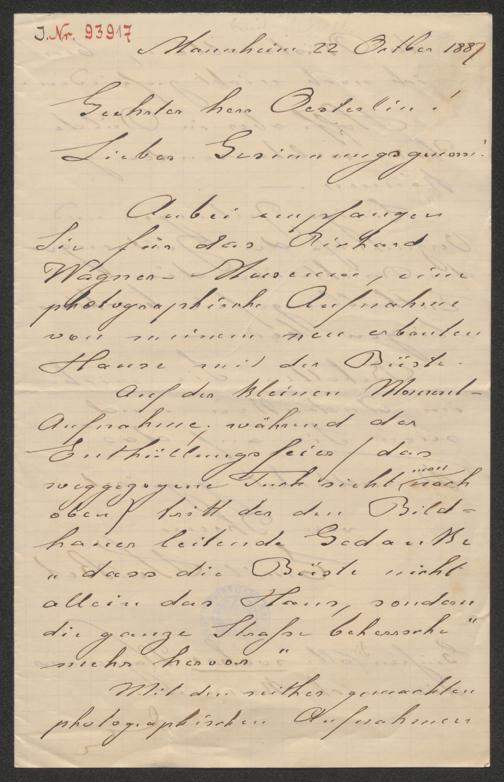 J. Nr. 93917
Mannheim 22 October 1887
Geehrter Herr Oesterlin!
Lieber Gesinnungsgenosse!
Anbei empfangen
Sie für das Richard
Wagner-Museum, eine
photographische Aufnahme
von meinem neu erbauten
Hause mit der Büste.
Auf der kleinen Moment-
Aufnahme, während der
Enthüllungsfeier / das
weggezogene Tuch sieht man noch
oben / tritt der den Bild-
hauer leitende Gedanke
"dass die Büste nicht
allein das Haus, sondern
die ganze Straße beherrsche"
mehr hervor"
Mit den seither gemachten
photographischen Aufnahmen